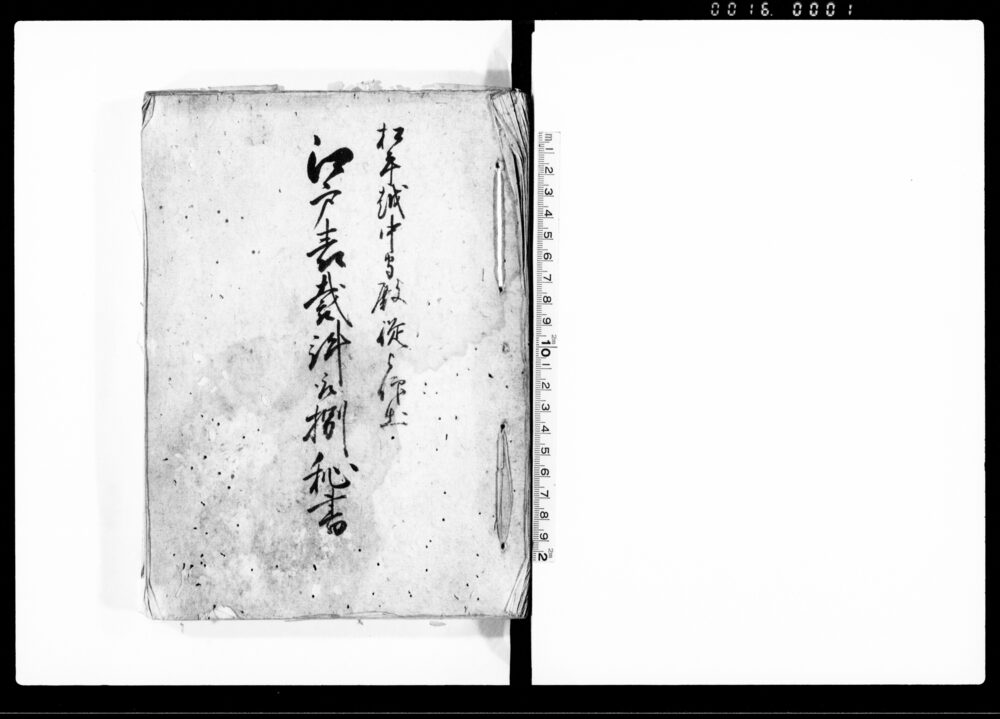 0016. 0001
松平越中守殿従被仰出
江戸表裁許公捌秘書
m 1 2 3 4 5 6 7 8 9 10 1 2 3 4 5 6 7 8 9 2